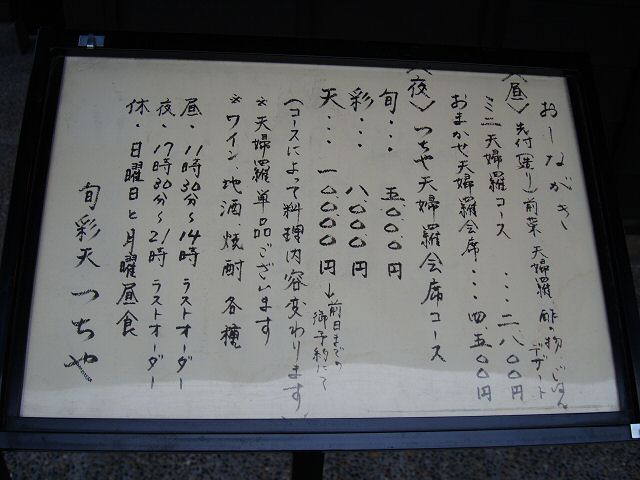 おしながき
〈昼〉 先付(造り)前菜 天婦羅 酢の物・ごはん
デザート
ミニ天婦羅コース ・・・二、八〇〇円
おまかせ天婦羅会席・・・四、五〇〇円
〈夜〉 つちや天婦羅会席コース
旬・・・ 五、〇〇〇円
彩・・・ 八、〇〇〇円
天・・・ 一〇、〇〇〇円→前日までの
御予約にて
(コースによって料理内容変わります)
※天婦羅単品ございます
※ワイン・地酒・焼酎 各種
昼・11時30分〜14時 ラストオーダー
夜・17時30分〜21時 ラストオーダー
休・日曜日と月曜昼食
旬彩天 つちや